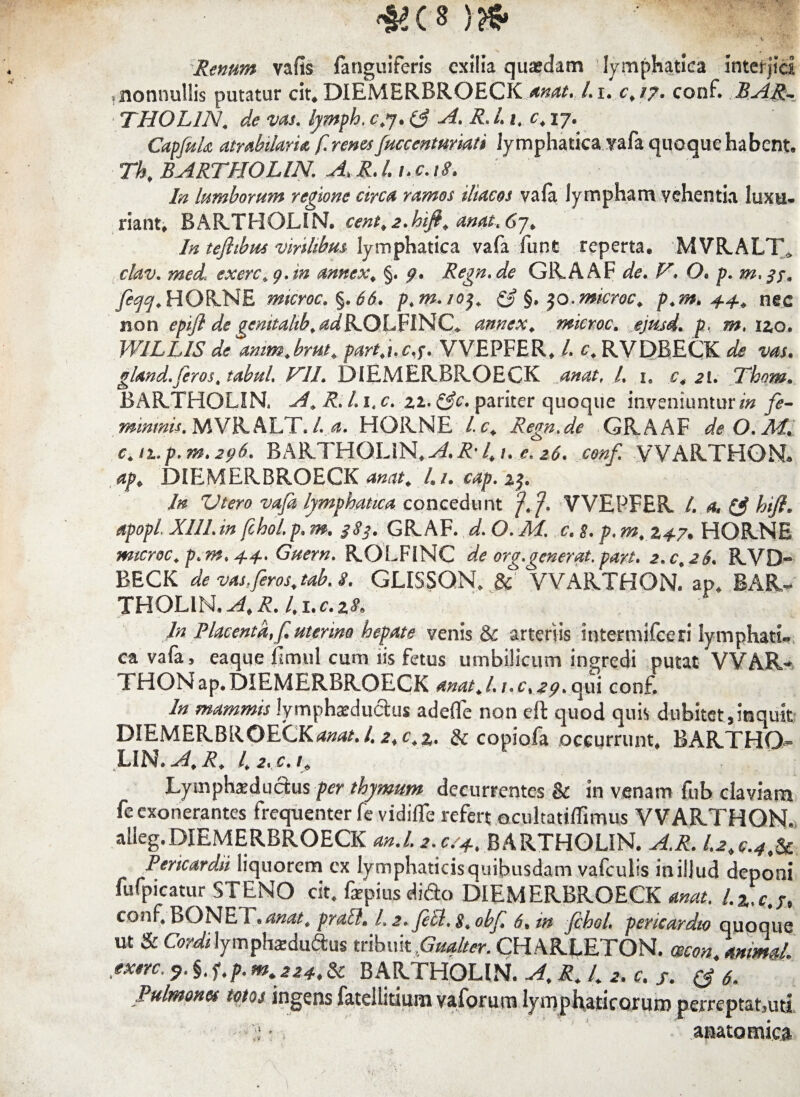 (8)
Renum vasis sanguiferis exilia quædam lymphatica interjici
nonnullis putatur cit. DIEMERBROECK anat. l. 1. c. 17. conf. BAR-
THOLIN. de vas. lymph. c. 7. & A. R. l. 1. c. 17.
Capsulæ atrabilariæ s. renes succenturiati lymphatica vasa quoque habent.
Th. BARTHOLIN. A. R. l. 1. c. 18.
In lumborum regione circa ramos iliacos vasa lympham vehentia luxu-
riant, BARTHOLIN. cent. 2. hist. anat. 67.
In testibus virilibus lymphatica vasa sunt reperta. MVRALT.
clav. med. exerc. 9. in annex. §. 9. Regn. de GRAAF de. V. O. p. m. 35.
seqq. HORNE microc. §. 66. p. m. 103. & §. 30. microc. p. m. 44. nec
non epist de genitalib. ad ROLFINC. annex. microc. ejusd. p. m. 120.
WILLIS de anim. brut. part. 1. c. 5. VVEPFER. l. c. RVDBECK de vas.
gland. seros. tabul. VII. DIEMERBROECK anat. l. 1. c. 21. Thom.
BARTHOLIN. A. R. l. 1. c. 22. &c. pariter quoque inveniuntur in fe-
mininis. MVRALT. l. a. HORNE l. c. Regn. de GRAAF de O. M.
c. 12. p. m. 296. BARTHOLIN. A. R. l. 1. e. 26. conf. VVARTHON.
ap. DIEMERBROECK anat. l. 1. cap. 23.
In Utero vasa lymphatica concedunt J. J. VVEPFER l. a. & hist.
apopl. XIII. in schol. p. m. 383. GRAF. d. O. M. c. 8. p. m. 247. HORNE
microc. p. m. 44. Guern. ROLFINC de org. generat. part. 2. c. 26. RVD-
BECK de vas. seros. tab. 8. GLISSON. & VVARTHON. ap. BAR-
THOLIN. A. R. l. 1. c. 28.
In Placentâ, s. uterino hepate venis & arteriis intermisceri lymphati-
ca vasa, eaque simul cum iis fetus umbilicum ingredi putat VVAR-
THON ap. DIEMERBROECK anat. l. 1. c. 29. qui conf.
In mammis lymphæductus adesse non est quod quis dubitet, inquit
DIEMERBROECK anat. l. 2. c. 2. & copiosa occurrunt. BARTHO-
LIN. A. R. l. 2. c. 1.
Lymphæductus per thymum decurrentes & in venam sub claviam
se exonerantes frequenter se vidisse refert ocultatissimus VVARTHON.
alleg. DIEMERBROECK an. l. 2. c. 4. BARTHOLIN. A. R. l. 2. c. 4. &
Pericardii liquorem ex lymphaticis quibusdam vasculis in illud deponi
suspicatur STENO cit. sæpius dicto DIEMERBROECK anat. l. 2. c. 5.
conf. BONET. anat. pract. l. 2. sect. 8. obs. 6. in schol. pericardio quoque
ut & Cordi lymphæductus tribuit Gualter. CHARLETON. œcon. animal.
exerc. 9. §. 5. p. m. 224. & BARTHOLIN. A. R. l. 2. c. 5. & 6.
Pulmones totos ingens satellitium vasorum lymphaticorum perreptat, uti
anatomica